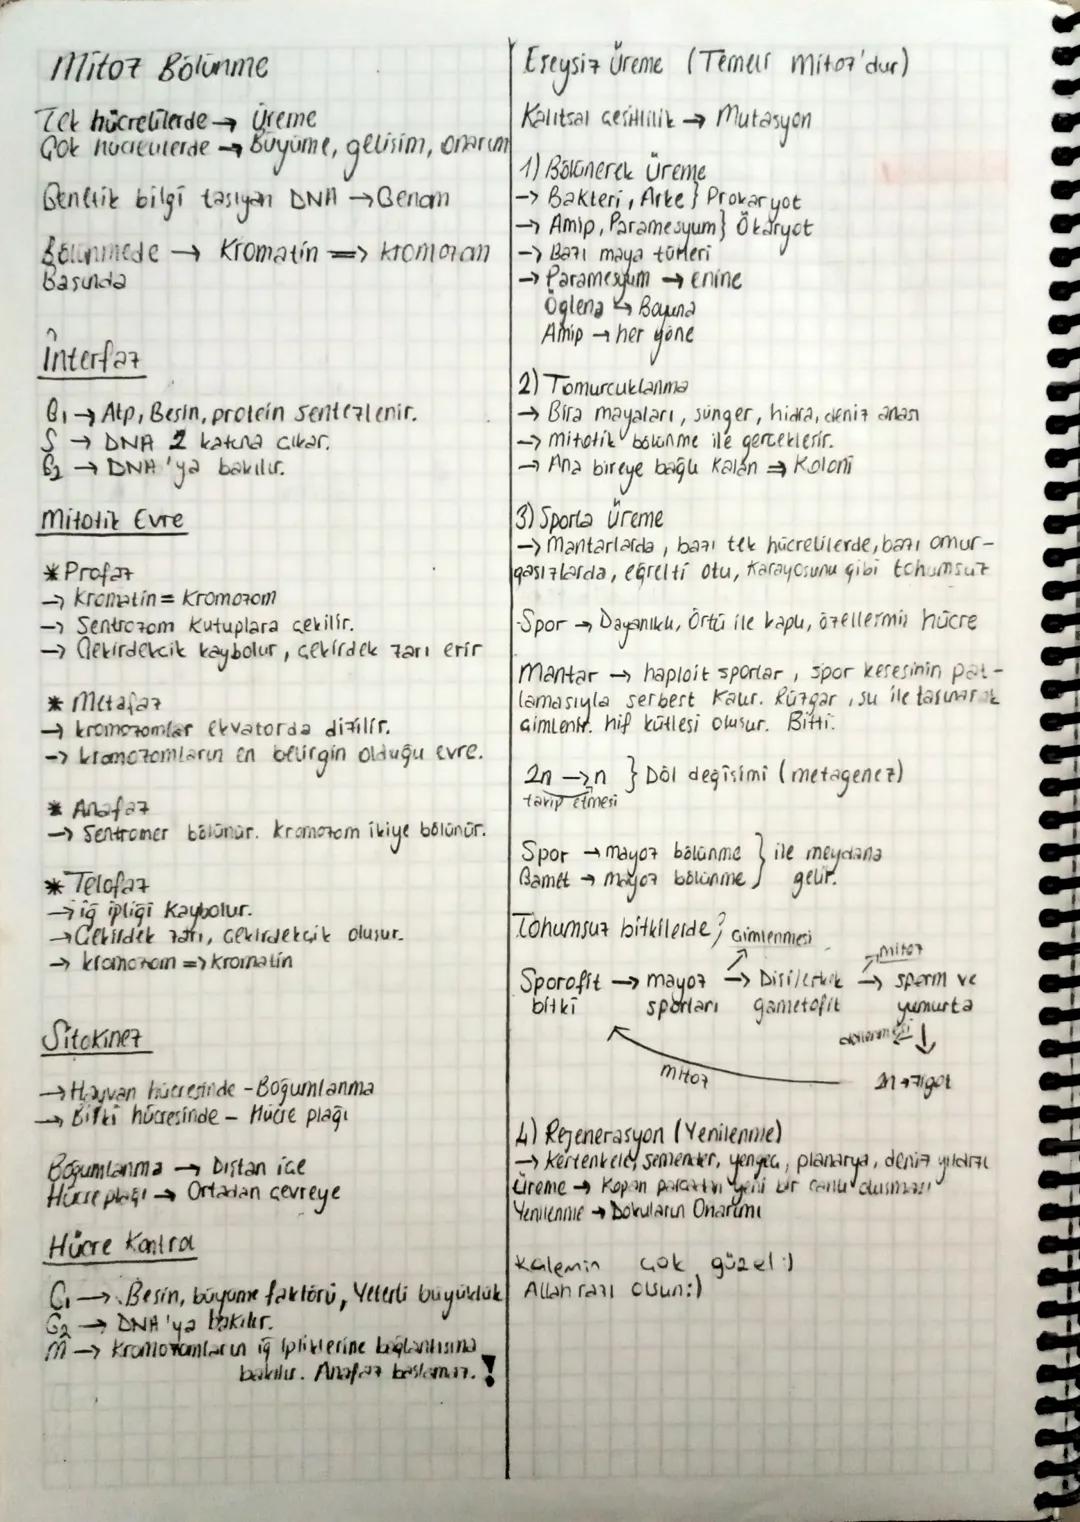 Mitoz Bölünme
Tek hücrelilerde → Üreme
Çok hücrelilerde → Büyüme, gelişim, onarım
Genetik bilgi taşıyan DNA → Genom
Bölünmede → Kromatin => kromozom
Başında
İnterfaz
G1 → Atp, Besin, protein sentezlenir.
S → DNA 2 katına çıkar.
G2 → DNA'ya bakılır.
Mitotik Evre
* Profaz
→ Kromatin = Kromozom
→ Sentrozom Kutuplara çekilir.
→ Çekirdekcik kaybolur, çekirdek zarı erir
* Metafaz
→ kromozomlar ekvatorda dizilir.
→ kromozomların en belirgin olduğu evre.
* Anafaz
→ Sentromer bölünür. kromozom ikiye bölünür.
* Telofaz
→ iğ ipliği Kaybolur.
→ Çekirdek zarı, çekirdekçik oluşur.
→ kromozom => Kromatin
Sitokinez
→ Hayvan hücresinde - Boğumlanma
→ Bitki hücresinde - Hücre plağı
Boğumlanma → Dıştan içe
Hücre plağı → Ortadan çevreye
Hücre Kontrol
G1 → Besin, büyüme faktörü, Yeterli büyüklük
G2 → DNA'ya bakılır.
M → Kromozomların iğ ipliklerine bağlantısına
bakılır. Anafaz başlamaz. !
Eşeysiz Üreme (Temeli mitoz'dur)
Kalıtsal çeşitlilik → Mutasyon
1) Bölünerek Üreme
→ Bakteri, Arke } Prokaryot
→ Amip, Paramesyum } Ökaryot
→ Bazı maya türleri
→ Paramesyum → enine
Öglena ↳ Boyuna
Amip → her yöne
2) Tomurcuklanma
→ Bira mayaları, sünger, hidra, deniz anası
→ mitotik bölünme ile gerçekleşir.
→ Ana bireye bağlı Kalan ⇒ Koloni
3) Sporla Üreme
→ Mantarlarda, bazı tek hücrelilerde, bazı omur-
gasızlarda, eğrelti otu, Karayosunu gibi tohumsuz
-Spor → Dayanıklı, Örtü ile kaplı, özelleşmiş hücre
Mantar → haploit sporlar, spor kesesinin pat-
lamasıyla serbest Kalır. Rüzgar, su ile taşınarak
çimlenir. hif kütlesi oluşur. Bitti.
2n → n } Döl değişimi (metagenez)
takip etmesi
Spor → mayoz bölünme } ile meydana
Gamet → mayoz bölünme } gelir.
Tohumsuz bitkilerde; çimlenmesi
mitoz
Sporofit → mayoz → Dişi/erkek → sperm ve
bitki sporları gametofit yumurta
döllenmesi
mitoz 2n → zigot
4) Rejenerasyon (Yenilenme)
→ Kertenkele, semender, yengeç, planarya, deniz yıldızı
Üreme → Kopan parçadan yeni bir canlı oluşması
Yenilenme → Dokuların Onarımı
Kalemin çok güzel :)
Allah razı olsun :)